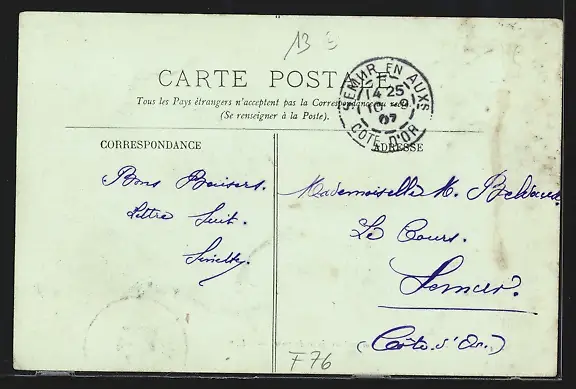 13
CARTE POSTALE
Tous les Pays étrangers n'acceptent pas la Correspondance au recto.
(Se renseigner à la Poste).
SEMUR EN AUXS
14 25
10
07
COTE D'OR
CORRESPONDANCE
ADRESSE
Bons Baisers.
Lettre Suit.
Mademoiselle M.
Le Cours.
Semur.
(Côte d'Or)
F76